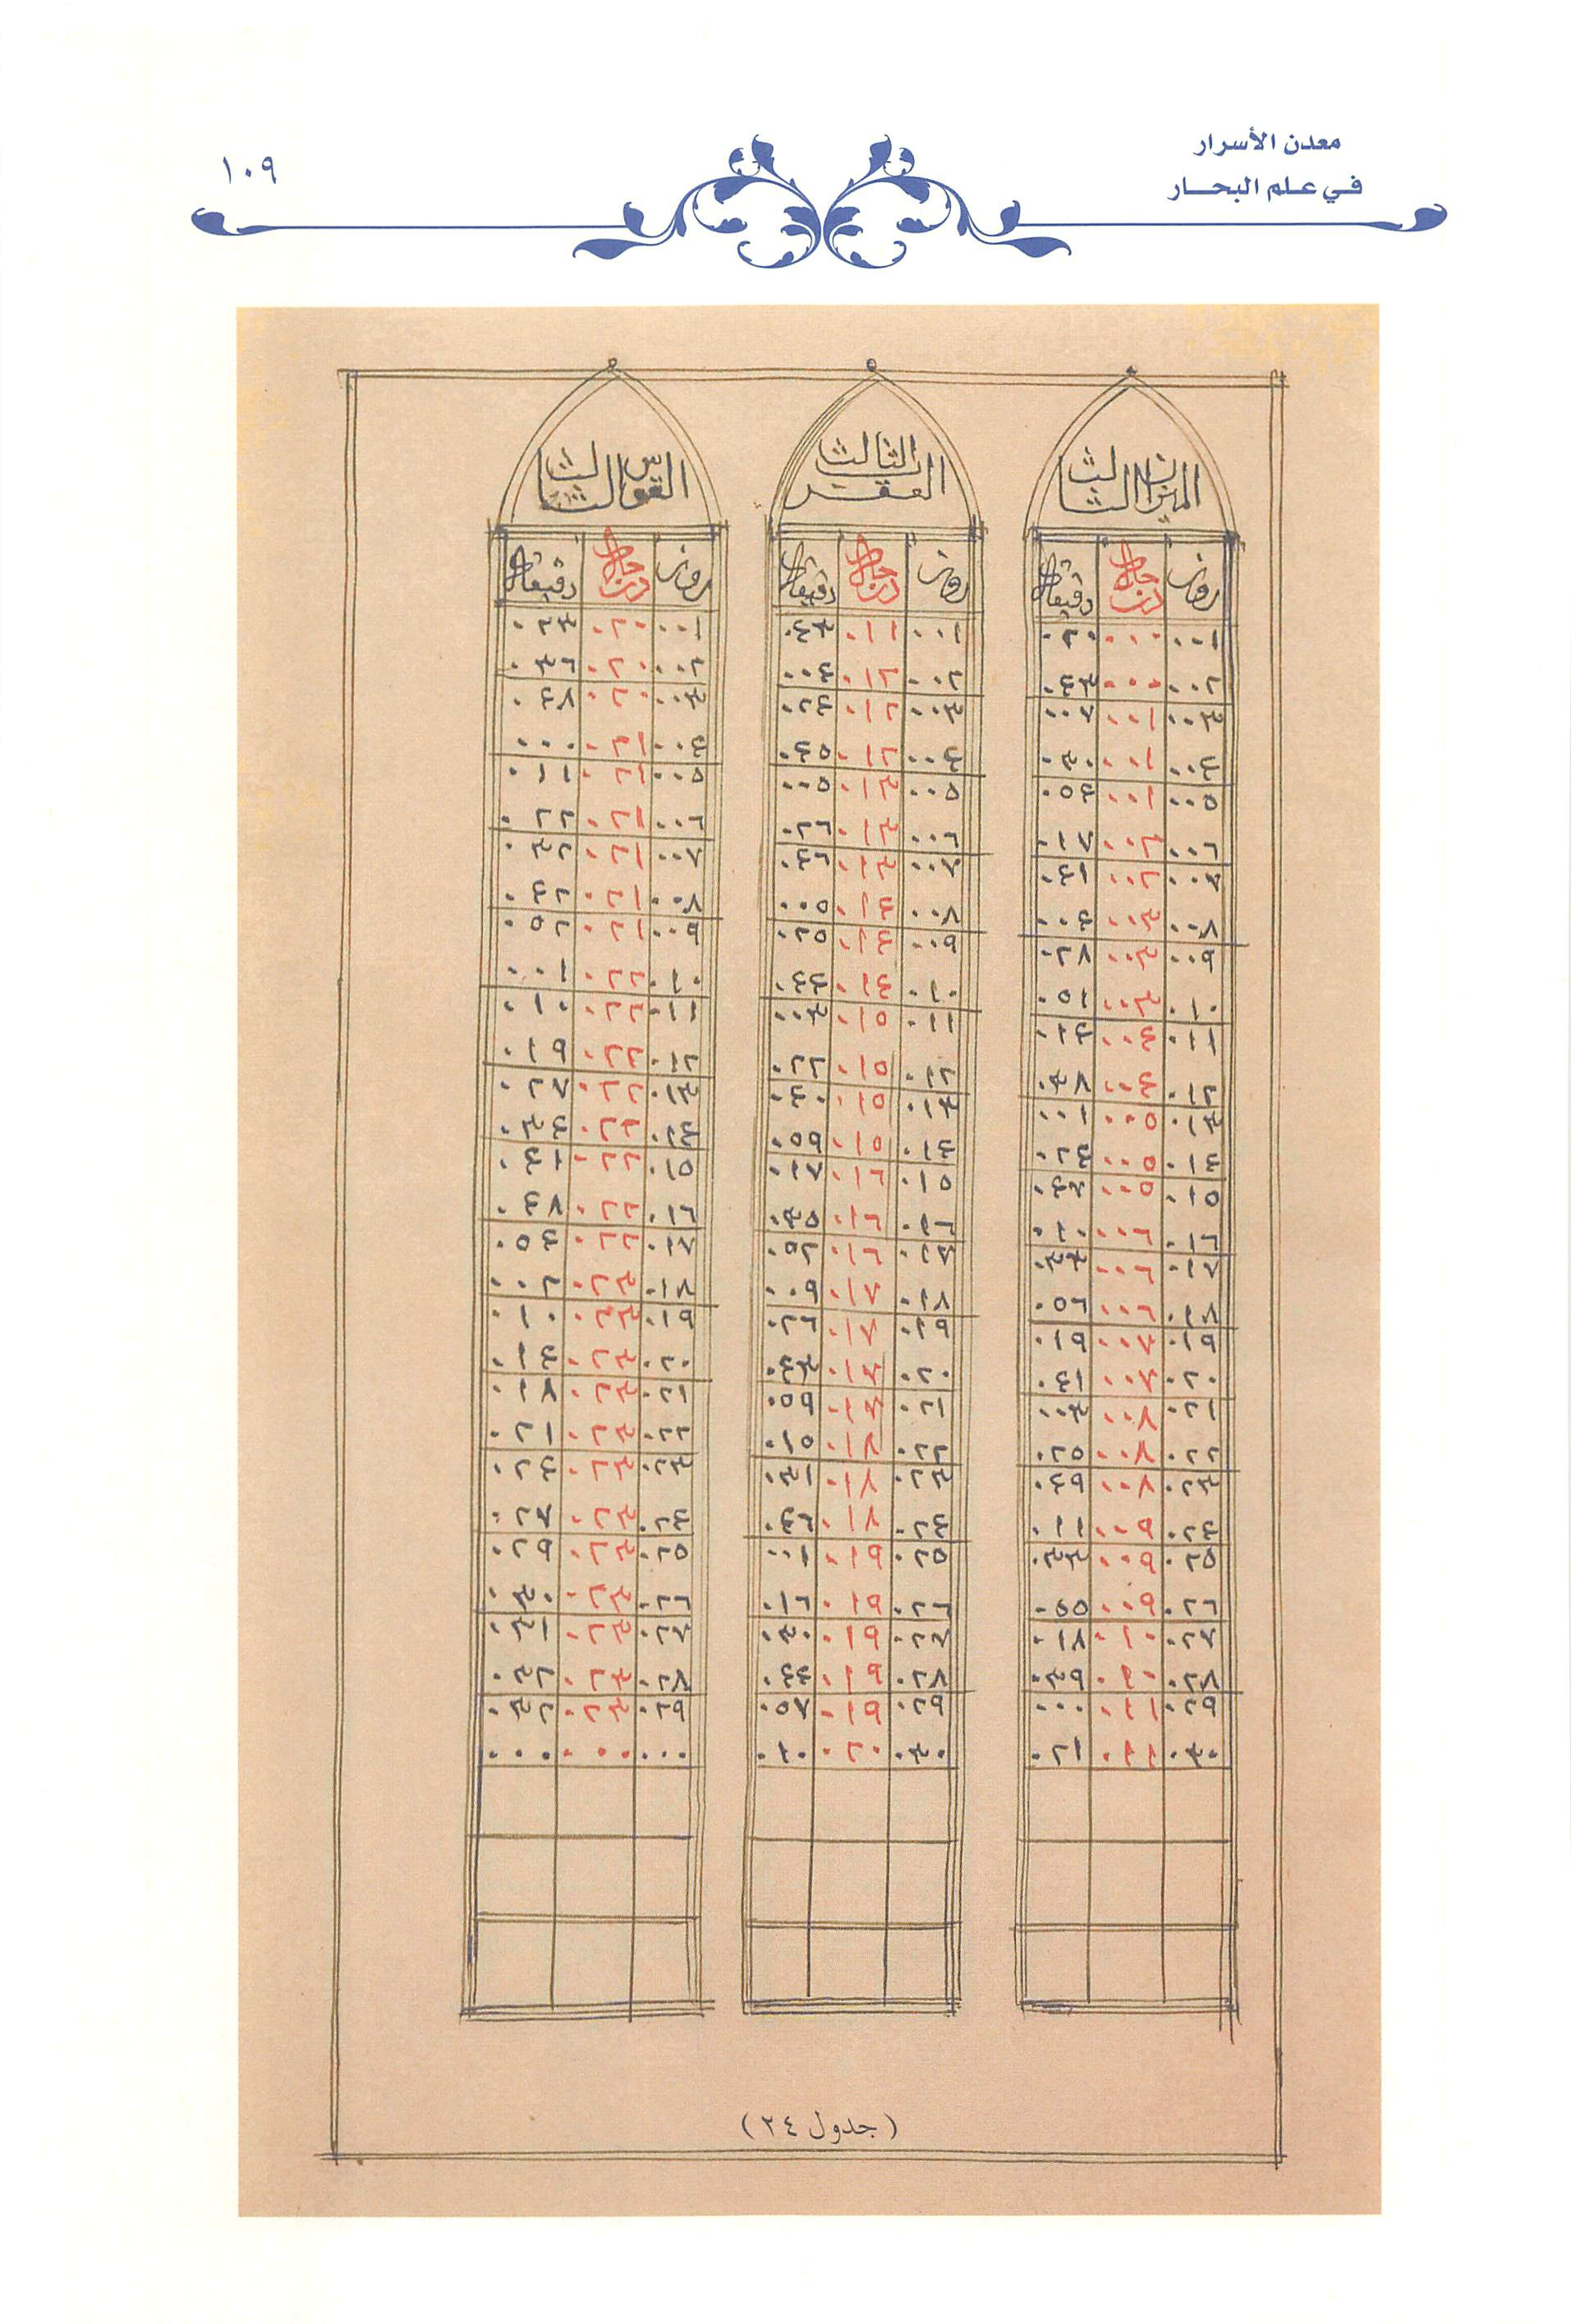 معدن الأسرار
في علم البحار
١٠٩
الميزان الثالث
روز درجات دقيقات
٠٠١ ٠٠٠ ٠٢٠
٠٠٢ ٠٠٠ ٠٤٣
٠٠٣ ٠٠١ ٠٠٧
٠٠٤ ٠٠١ ٠٣٠
٠٠٥ ٠٠١ ٠٥٤
٠٠٦ ٠٠٢ ٠١٧
٠٠٧ ٠٠٢ ٠٤١
٠٠٨ ٠٠٣ ٠٠٤
٠٠٩ ٠٠٣ ٠٢٨
٠١٠ ٠٠٣ ٠٥١
٠١١ ٠٠٤ ٠١٤
٠١٢ ٠٠٤ ٠٣٨
٠١٣ ٠٠٥ ٠٠١
٠١٤ ٠٠٥ ٠٢٤
٠١٥ ٠٠٥ ٠٤٧
٠١٦ ٠٠٦ ٠١٠
٠١٧ ٠٠٦ ٠٣٣
٠١٨ ٠٠٦ ٠٥٦
٠١٩ ٠٠٧ ٠١٩
٠٢٠ ٠٠٧ ٠٤١
٠٢١ ٠٠٨ ٠٠٣
٠٢٢ ٠٠٨ ٠٢٥
٠٢٣ ٠٠٨ ٠٤٩
٠٢٤ ٠٠٩ ٠١١
٠٢٥ ٠٠٩ ٠٣٣
٠٢٦ ٠٠٩ ٠٥٥
٠٢٧ ٠١٠ ٠١٨
٠٢٨ ٠١٠ ٠٣٩
٠٢٩ ٠١١ ٠٠٠
٠٣٠ ٠١١ ٠٢١
العقرب الثالث
روز درجات دقيقات
٠٠١ ٠١١ ٠٤٣
٠٠٢ ٠١٢ ٠٠٤
٠٠٣ ٠١٢ ٠٢٤
٠٠٤ ٠١٢ ٠٤٥
٠٠٥ ٠١٣ ٠٠٥
٠٠٦ ٠١٣ ٠٢٦
٠٠٧ ٠١٣ ٠٤٦
٠٠٨ ٠١٤ ٠٠٥
٠٠٩ ٠١٤ ٠٢٥
٠١٠ ٠١٤ ٠٤٤
٠١١ ٠١٥ ٠٠٣
٠١٢ ٠١٥ ٠٢٢
٠١٣ ٠١٥ ٠٤٠
٠١٤ ٠١٥ ٠٥٩
٠١٥ ٠١٦ ٠١٧
٠١٦ ٠١٦ ٠٣٥
٠١٧ ٠١٦ ٠٥٢
٠١٨ ٠١٧ ٠٠٩
٠١٩ ٠١٧ ٠٢٦
٠٢٠ ٠١٧ ٠٤٣
٠٢١ ٠١٧ ٠٥٩
٠٢٢ ٠١٨ ٠١٥
٠٢٣ ٠١٨ ٠٣١
٠٢٤ ٠١٨ ٠٤٦
٠٢٥ ٠١٩ ٠٠١
٠٢٦ ٠١٩ ٠١٦
٠٢٧ ٠١٩ ٠٣٠
٠٢٨ ٠١٩ ٠٤٤
٠٢٩ ٠١٩ ٠٥٧
٠٣٠ ٠٢٠ ٠١٠
القوس الثالث
روز درجات دقيقات
٠٠١ ٠٢٠ ٠٢٣
٠٠٢ ٠٢٠ ٠٣٦
٠٠٣ ٠٢٠ ٠٤٨
٠٠٤ ٠٢١ ٠٠٠
٠٠٥ ٠٢١ ٠١١
٠٠٦ ٠٢١ ٠٢٢
٠٠٧ ٠٢١ ٠٣٢
٠٠٨ ٠٢١ ٠٤٢
٠٠٩ ٠٢١ ٠٥٢
٠١٠ ٠٢٢ ٠٠١
٠١١ ٠٢٢ ٠١٠
٠١٢ ٠٢٢ ٠١٩
٠١٣ ٠٢٢ ٠٢٧
٠١٤ ٠٢٢ ٠٣٤
٠١٥ ٠٢٢ ٠٤١
٠١٦ ٠٢٢ ٠٤٨
٠١٧ ٠٢٢ ٠٥٤
٠١٨ ٠٢٣ ٠٠٢
٠١٩ ٠٢٣ ٠١٠
٠٢٠ ٠٢٣ ٠١٤
٠٢١ ٠٢٣ ٠١٨
٠٢٢ ٠٢٣ ٠٢١
٠٢٣ ٠٢٣ ٠٢٤
٠٢٤ ٠٢٣ ٠٢٧
٠٢٥ ٠٢٣ ٠٢٩
٠٢٦ ٠٢٣ ٠٣٠
٠٢٧ ٠٢٣ ٠٣١
٠٢٨ ٠٢٣ ٠٣٢
٠٢٩ ٠٢٣ ٠٣٢
٠٠٠ ٠٠٠ ٠٠٠
( جدول ٢٤ )